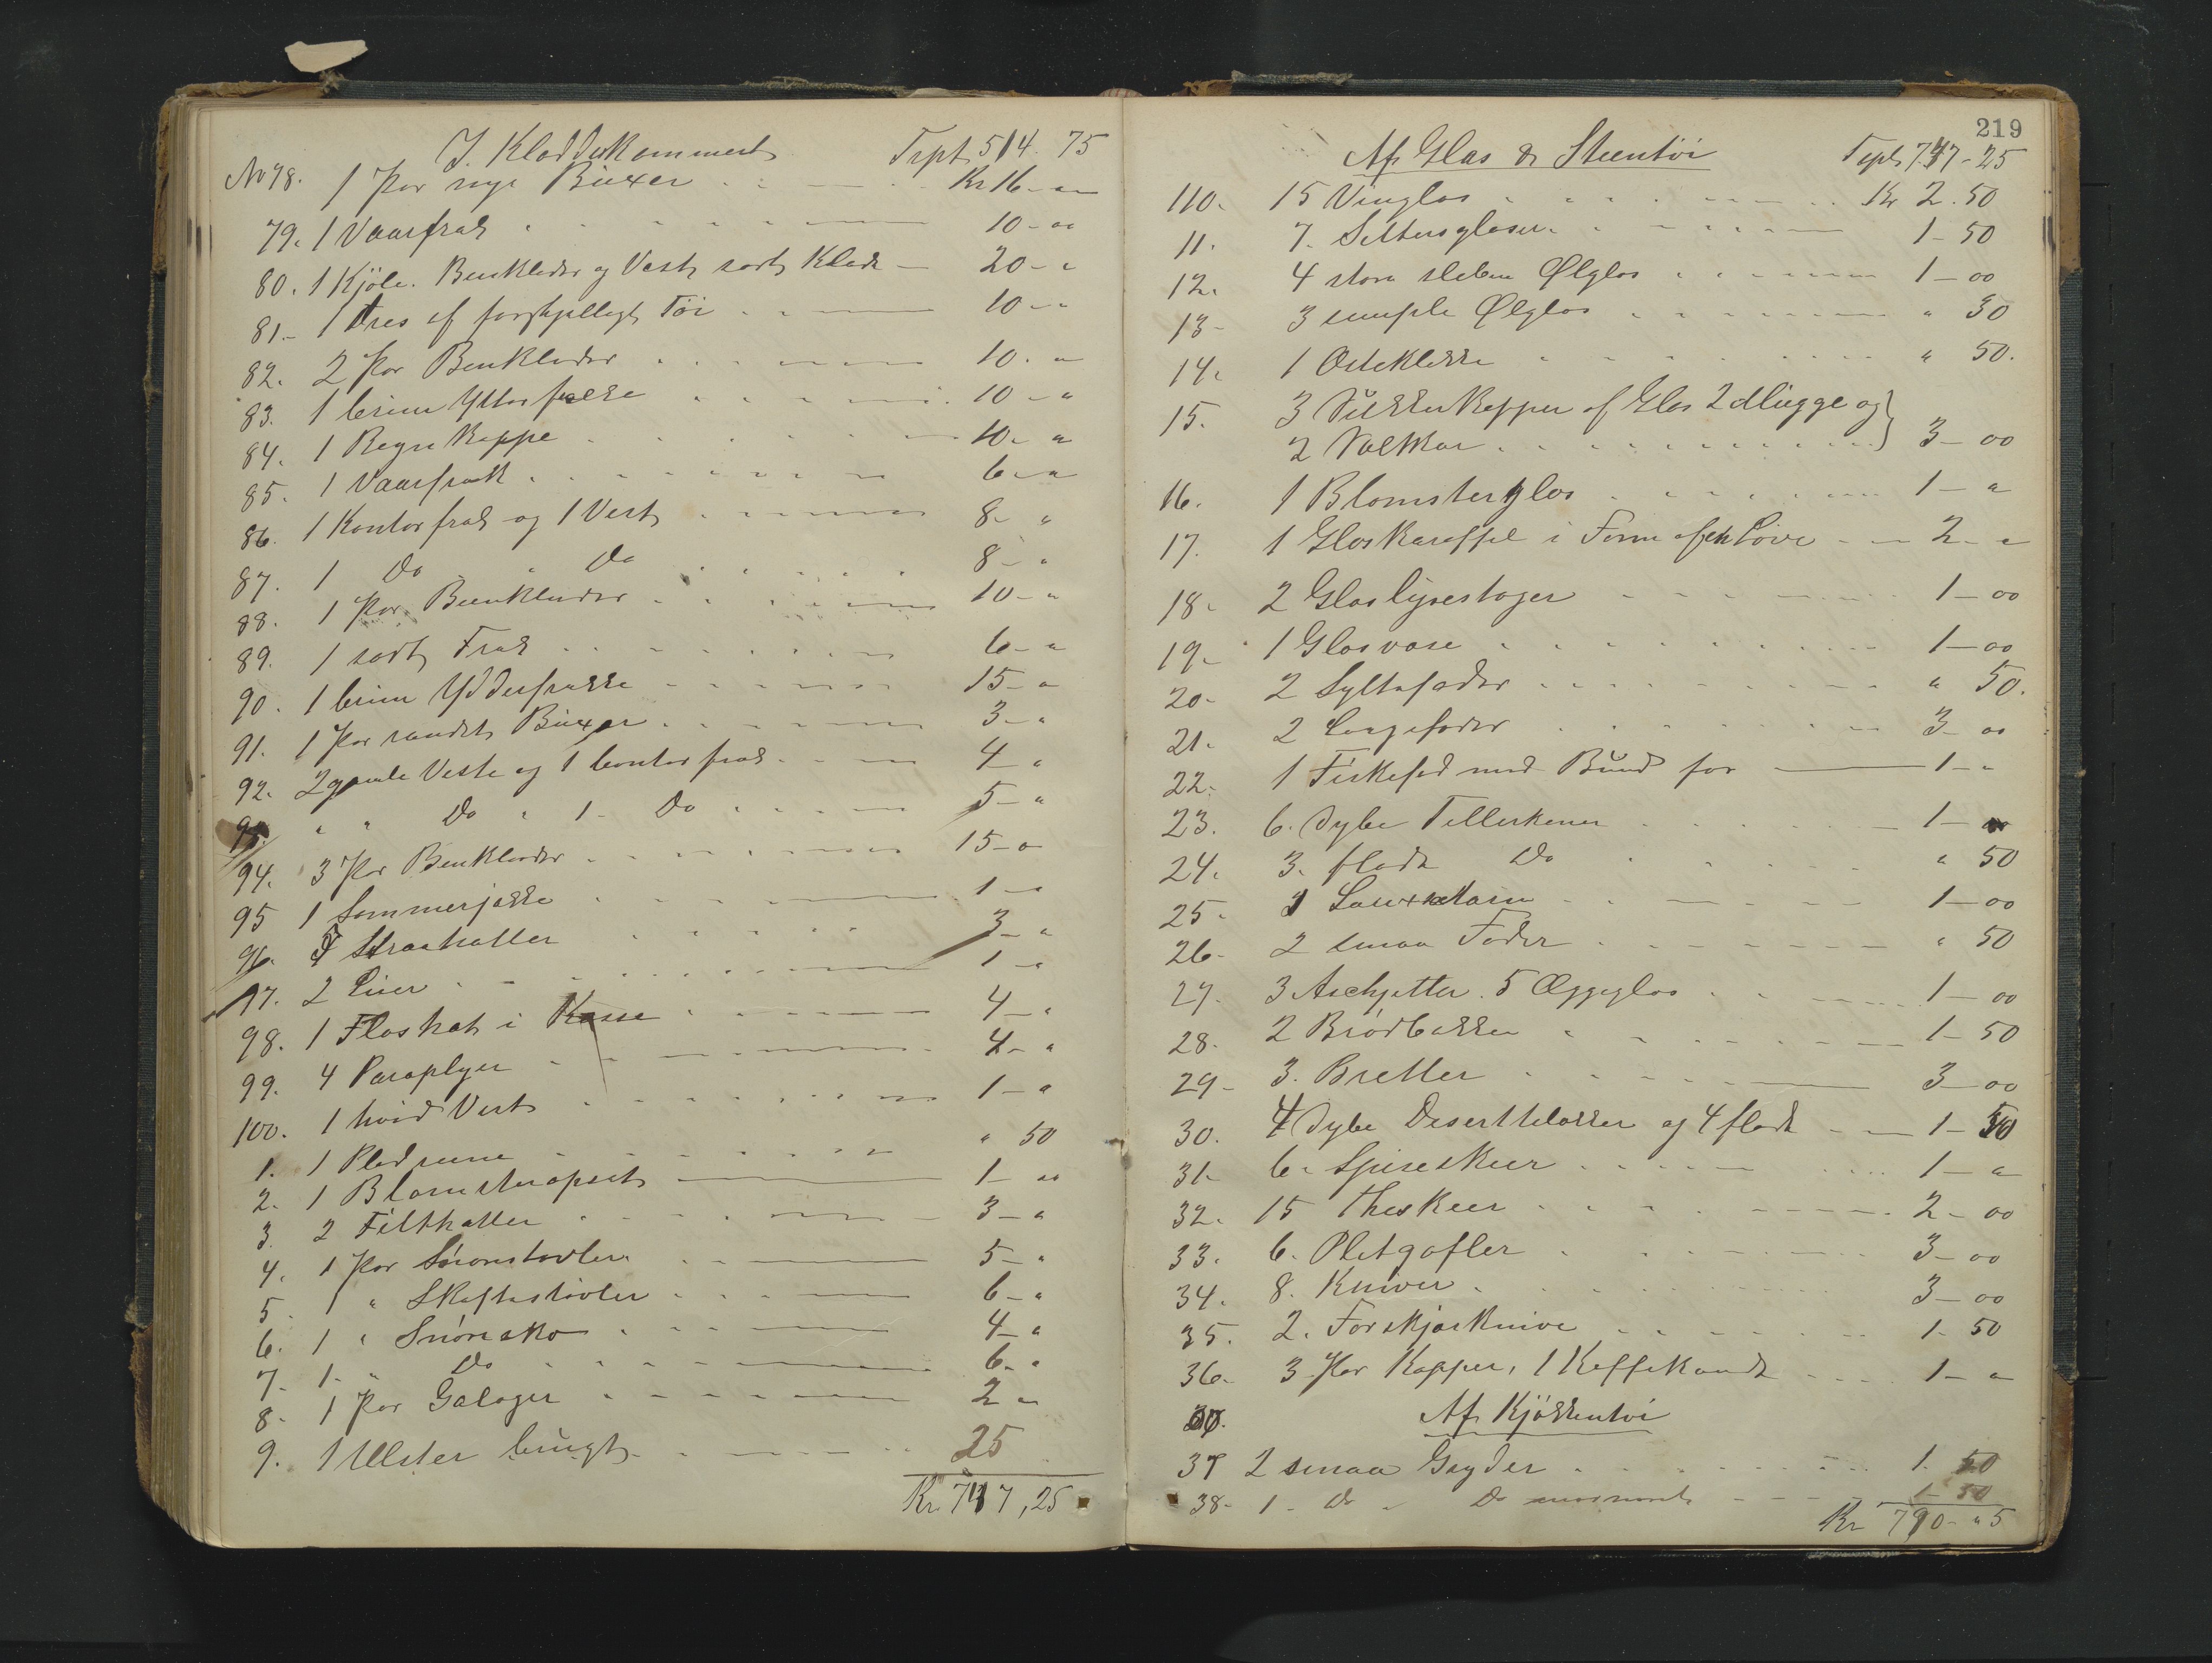 I. Klædeskammeret Trpt 514. 75
No 78. 1 Par nye Buxer Kr 16 - "
79. 1 Vaarfrak 10 - 00
80. 1 Kjole. Benklæder og Vest sort Klæde 20 - "
81. 1 Dres af forskjelligt Töi 10 - "
82. 2 Par Benklæder 10. "
83. 1 brun Ytterfrakke 10 - "
84. 1 Regnkappe 10. "
85. 1 Vaarfrak 6 - "
86. 1 Kontorfrak og 1 Vest 8 - "
87. 1 Do " Do 8 - "
88. 1 Par Benklæder 10 - "
89. 1 sort Frak 6 - "
90. 1 brun Ydderfrakke 15 - "
91. 1 Par randet Buxer 3 - "
92. 2 gamle Veste og 1 Contorfrak 4 - "
93. " " Do " 1 - Do 5 - "
94. 3 Par Benklæder 15 - "
95 1 Sommerjakke 1 - "
96. Straahatter 3 - "
97. 2 Luer 1 - "
98. 1 Floshat i Kasse 4 - "
99. 4 Paraplyer 4 - "
100. 1 hvid Vest 1 - "
1. 1 Pledreme " 50
2. 1 Blomsteropsats 1 - 00
3. 2 Filthatter 3 - "
4. 1 Par Snörestövler 5 - "
5. 1 " Skaftestövler 6 - "
6. 1 " Snöresko 4 - "
7 - 1 - " Do 6 - "
8 - 1 Par Galoger 2 "
9. 1 Ulster brugt 25
Kr. 747,25
219
Af Glas & Steentöi Trpt 747 - 25
110. 15 Vinglas Kr 2. 50
11. 7. Seltersglaser 1 - 50
12. 4 store slebne Ølglas 1 - 00
13 - 3 simple Ølglas " 30
14. 1 Osteklokke " 50.
15. 3 Sukkerkopper af Glas 2 Mugge og }
2 Saltkar 3 - 00
16. 1 Blomsterglas 1 - "
17. 1 Glaskaraffel i Form af en Löve 2 - "
18 - 2 Glaslysestager 1 - 00
19 - 1 Glasvase 1 - 00
20 - 2 Syltefader " 50.
21. 2 fader 3 - 00
22 - 1 Fiskefad med Bund for 1 - "
23. 6. dybe Tellerkener 1 -
24. 3. flade Do " 50
25 - 1 - 00
26 - 2 smaa Fader " 50
27 - 3 Asietter. 5 Æggeglas 1 - 00
28 - 2 Brödbakker 1 - 50
29 - 3. Bretter 3 - 00
30. 4 dybe Deserttelakker og 4 flade 1 - 50
31 - 6 - Spiseskeer 1 - "
32. 15 Theskeer 2 - 00
33. 6. Pletgafler 3 - 00
34. 8. Kniver 3 - 00
35. 2. Forskjærknive 1 - 50
36 - 3 Par Kopper, 1 Kaffekande 1 - "
Af Kjökkentöi
37 2 smaa Gryder 1. 50
38 - 1 - Do " Do 1 - 50
Kr 790 - "5